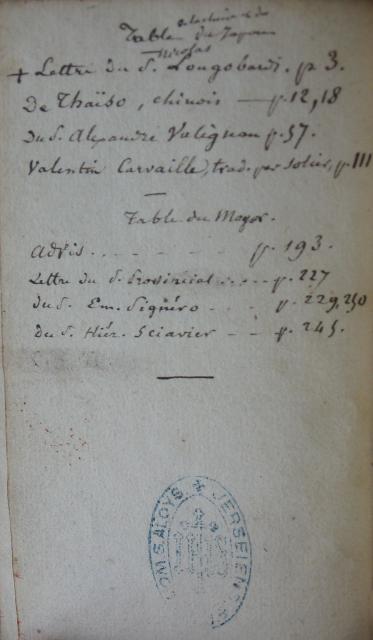 Table du Japon
Nicolas
+ Lettre du S. Longobardi. p 3.
De Thaïso, chinois — p. 12, 18
Du S. Alexandre Valignan p. 57.
Valentin Carvaille, trad. par Solier, p. 111
—
Table du Mogor.
Advis . . . . . . p. 193.
Lettre du S. Provincial . . . . p. 227
du S. Em. Pigņéro . . . p. 229, 250
Du S. Hiér. Sciavier - - p. 245.
DOM. S. ALOYS. JERSEIEN